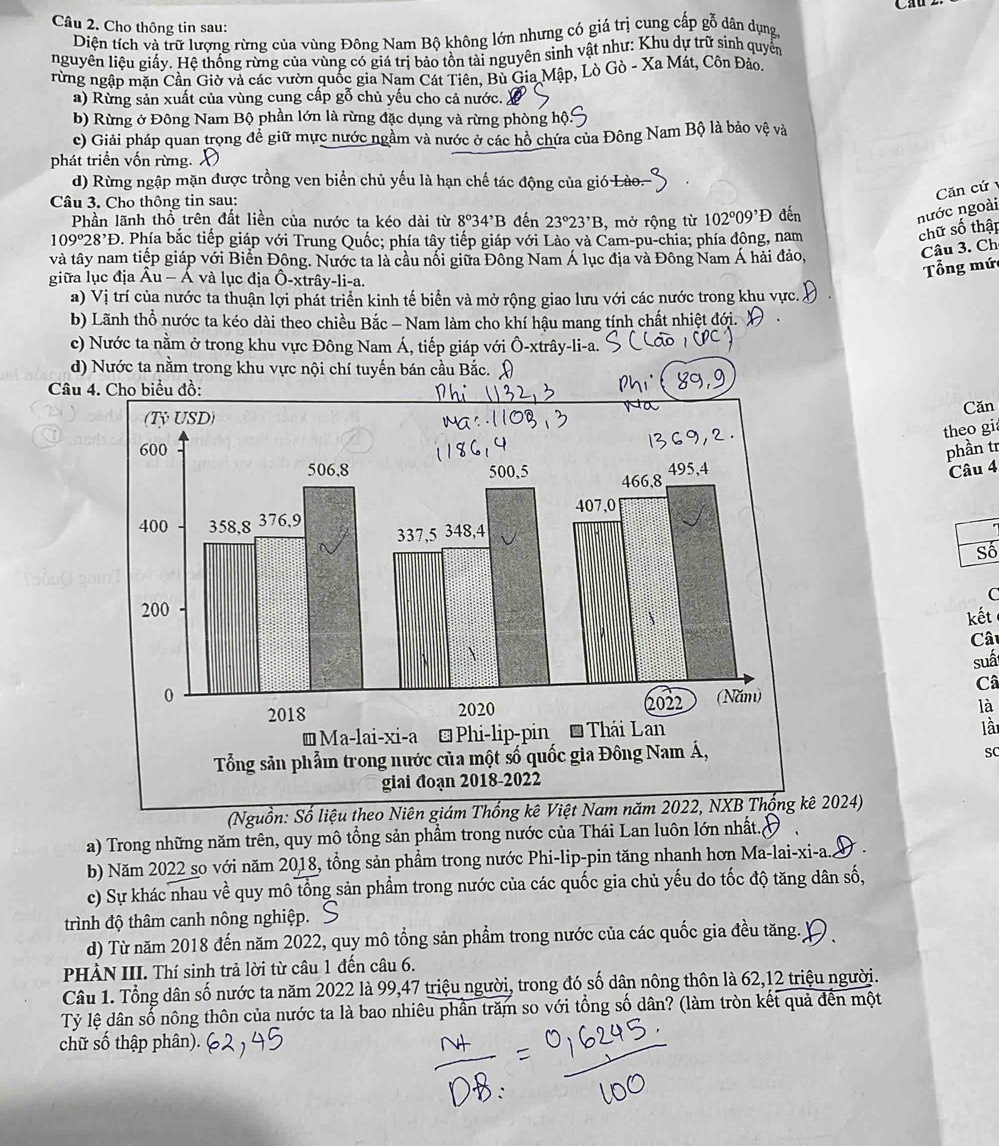 Câu 2.
Câu 2. Cho thông tin sau:
Diện tích và trữ lượng rừng của vùng Đông Nam Bộ không lớn nhưng có giá trị cung cấp gỗ dân dụng,
nguyên liệu giấy. Hệ thống rừng của vùng có giá trị bảo tồn tài nguyên sinh vật như: Khu dự trữ sinh quyển
rừng ngập mặn Cần Giờ và các vườn quốc gia Nam Cát Tiên, Bù Gia Mập, Lò Gò - Xa Mát, Côn Đảo.
a) Rừng sản xuất của vùng cung cấp gỗ chủ yếu cho cả nước. S
b) Rừng ở Đông Nam Bộ phần lớn là rừng đặc dụng và rừng phòng hộ. S
c) Giải pháp quan trọng để giữ mực nước ngầm và nước ở các hồ chứa của Đông Nam Bộ là bảo vệ và
phát triển vốn rừng. Đ
d) Rừng ngập mặn được trồng ven biển chủ yếu là hạn chế tác động của gió Lào. S
Câu 3. Cho thông tin sau:
Phần lãnh thổ trên đất liền của nước ta kéo dài từ 8º34’B đến 23º23’B, mở rộng từ 102º09’Đ đến
109º28’Đ. Phía bắc tiếp giáp với Trung Quốc; phía tây tiếp giáp với Lào và Cam-pu-chia; phía đông, nam
và tây nam tiếp giáp với Biển Đông. Nước ta là cầu nối giữa Đông Nam Á lục địa và Đông Nam Á hải đảo,
giữa lục địa Âu – Á và lục địa Ô-xtrây-li-a.
a) Vị trí của nước ta thuận lợi phát triển kinh tế biển và mở rộng giao lưu với các nước trong khu vực. Đ
b) Lãnh thổ nước ta kéo dài theo chiều Bắc – Nam làm cho khí hậu mang tính chất nhiệt đới. Đ
c) Nước ta nằm ở trong khu vực Đông Nam Á, tiếp giáp với Ô-xtrây-li-a. S (Lào, CPC)
d) Nước ta nằm trong khu vực nội chí tuyến bán cầu Bắc. Đ
Câu 4. Cho biểu đồ:
Phi 1132,3
Phi: 89,9
Ma: 1103,3
Na
1186,4
1369,2.
(Tỷ USD)
600
400
200
0
358,8 376,9 506,8
337,5 348,4 500,5
407,0 466,8 495,4
2018 2020 2022 (Năm)
Ma-lai-xi-a Phi-lip-pin Thái Lan
Tổng sản phẩm trong nước của một số quốc gia Đông Nam Á,
giai đoạn 2018-2022
(Nguồn: Số liệu theo Niên giám Thống kê Việt Nam năm 2022, NXB Thống kê 2024)
a) Trong những năm trên, quy mô tổng sản phẩm trong nước của Thái Lan luôn lớn nhất. Đ
b) Năm 2022 so với năm 2018, tổng sản phẩm trong nước Phi-lip-pin tăng nhanh hơn Ma-lai-xi-a. Đ
c) Sự khác nhau về quy mô tổng sản phẩm trong nước của các quốc gia chủ yếu do tốc độ tăng dân số,
trình độ thâm canh nông nghiệp. S
d) Từ năm 2018 đến năm 2022, quy mô tổng sản phẩm trong nước của các quốc gia đều tăng. Đ
PHẦN III. Thí sinh trả lời từ câu 1 đến câu 6.
Câu 1. Tổng dân số nước ta năm 2022 là 99,47 triệu người, trong đó số dân nông thôn là 62,12 triệu người.
Tỷ lệ dân số nông thôn của nước ta là bao nhiêu phần trăm so với tổng số dân? (làm tròn kết quả đến một
chữ số thập phân). 62,45
NT = 0,6245.
DS. 100
Căn cứ
nước ngoài
chữ số thập
Câu 3. Ch
Tổng mức
Căn
theo giá
phần tr
Câu 4
Số
C
kết
Câu
suấ
Câ
là
lần
so